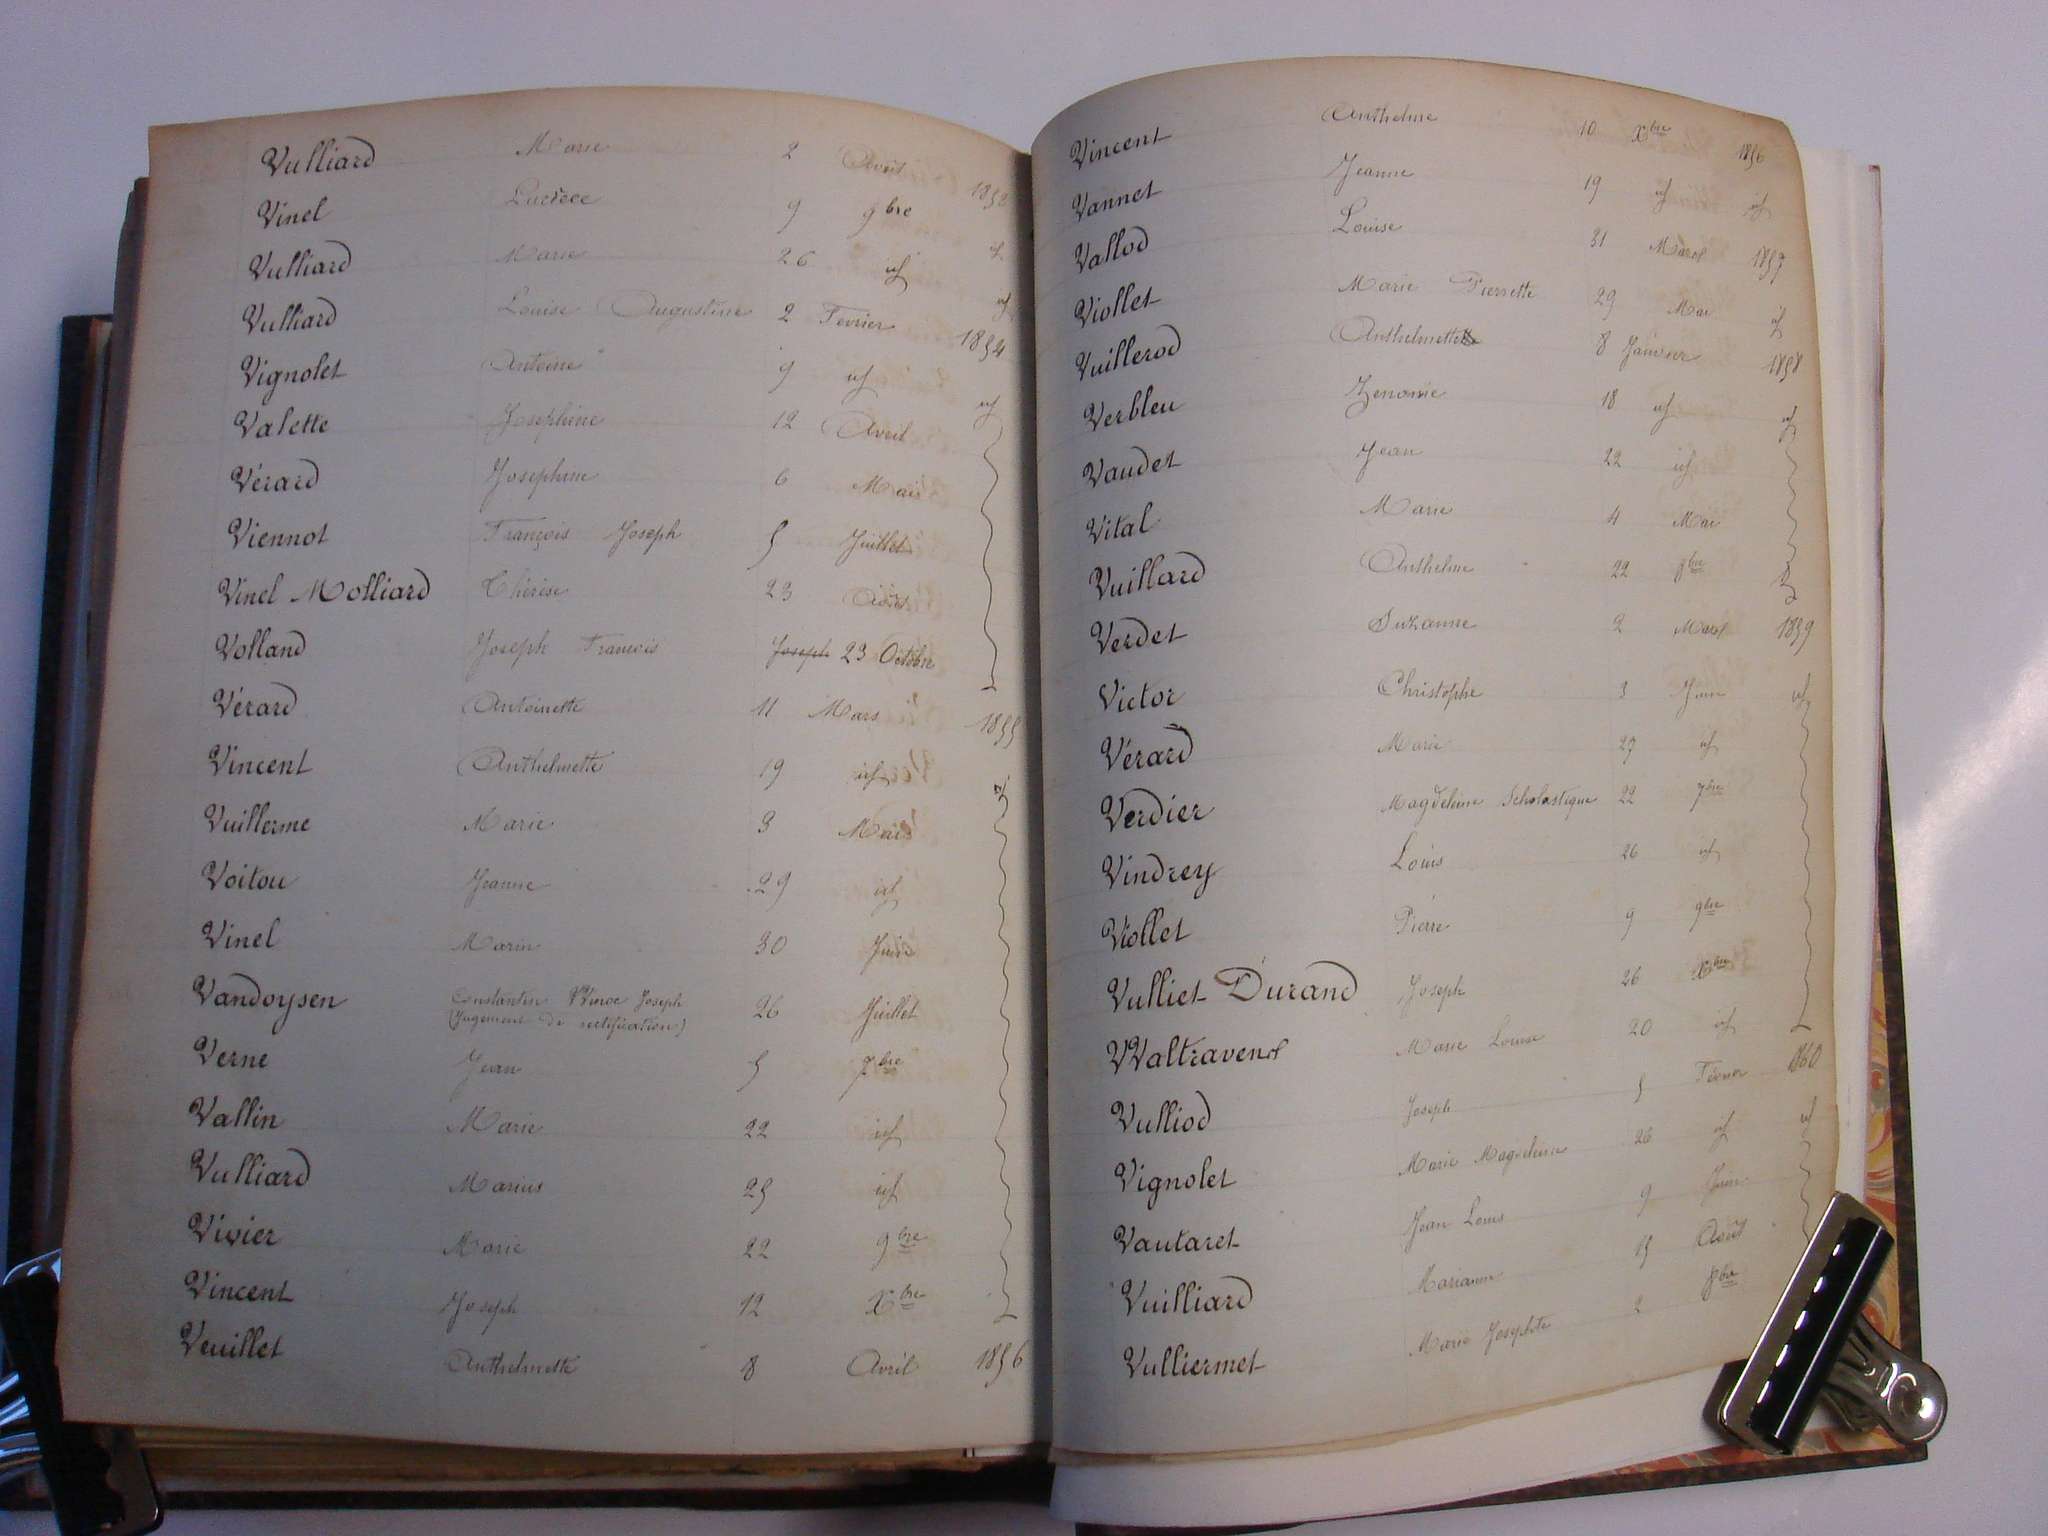 Vulliard Marie 2 Avril 1853
Vinel Lucrèce 9 9bre id
Vulliard Marie 26 id id
Vulliard Louise Augustine 2 Fevrier 1854
Vignolet Antoine 9 id id
Valette Josephine 12 Avril
Vérard Josephine 6 Mai
Viennot François Joseph 5 Juillet
Vinel Molliard Thérèse 23 Août
Volland Joseph François Joseph 23 Octobre
Vérard Antoinette 11 Mars 1855
Vincent Anthelmette 19 id id
Vuillerme Marie 3 Mai
Voitou Jeanne 29 id
Vinel Marin 30 Juin
Vandoysen Constantin Winoc Joseph 26 Juillet
(Jugement de rectification)
Verne Jean 5 7bre
Vallin Marie 22 id
Vulliard Marius 25 id
Vivier Marie 22 9bre
Vincent Joseph 12 Xbre
Veuillet Anthelmette 8 Avril 1856
Vincent Anthelme 10 Xbre 1856
Vannet Jeanne 19 id id
Vallod Louise 31 Mars 1857
Viollet Marie Pierrette 29 Mai id
Vuillerod Anthelmette 8 Janvier 1858
Verbleu Zenonie 18 id id
Vaudet Jean 22 id
Vital Marie 4 Mai
Vuillard Anthelme 22 8bre
Verdet Suzanne 2 Mars 1859
Victor Christophe 3 Juin id
Vérard Marie 27 id
Verdier Magdeleine Scholastique 22 7bre
Vindrey Louis 26 id
Viollet Pierre 9 9bre
Vulliet Durand Joseph 26 Xbre
Waltravend Marie Louise 20 id
Vulliod Joseph 5 Février 1860
Vignolet Marie Magdeleine 26 id id
Vautaret Jean Louis 9 Juin
Vuilliard Marianne 15 Août
Vulliermet Marie Josephte 2 8bre